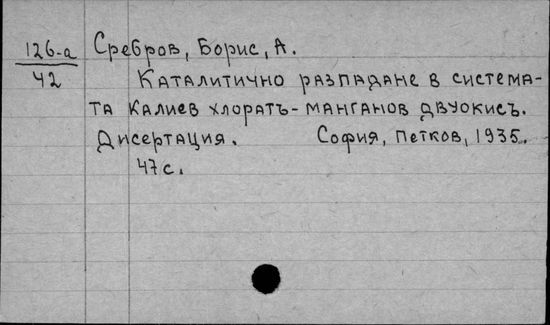 126-а Сребров, Борис, А.
42 Каталитично разпадане в система-
та калиев хлоратъ-манганов двуокисъ.
Дисертация. София, Петков, 1935.
47 с.